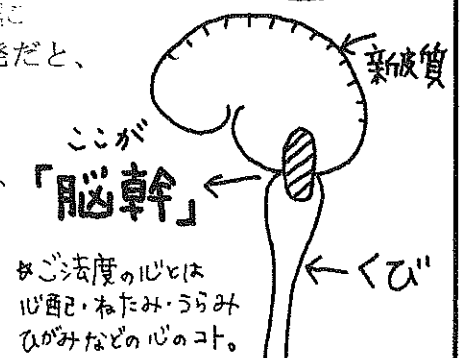 発だと、
新皮質
ここが
「脳幹」
くび
※ご法度の心とは
心配・ねたみ・うらみ
ひがみなどの心のコト。